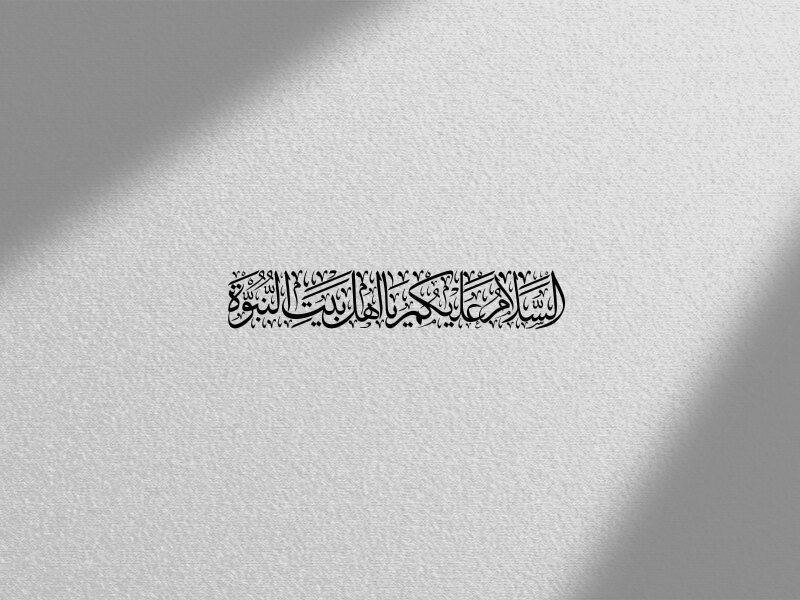 السَّلَامُ عَلَيْكُمْ يَا اهْلَ بَيْتِ النُّبُوَّةِ